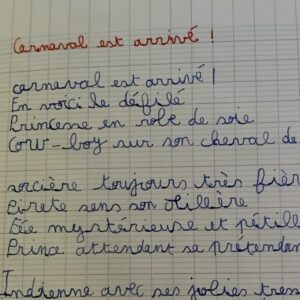 Carnaval est arrivé !
carnaval est arrivé !
En voici le défilé
Princesse en robe de soie
Cow-boy sur son cheval de
sorcière toujours très fièr
Pirete sens son
Fée mystérieuse et pétill
Prince attendant sa prétendan
Indienne avec ses jolies tress